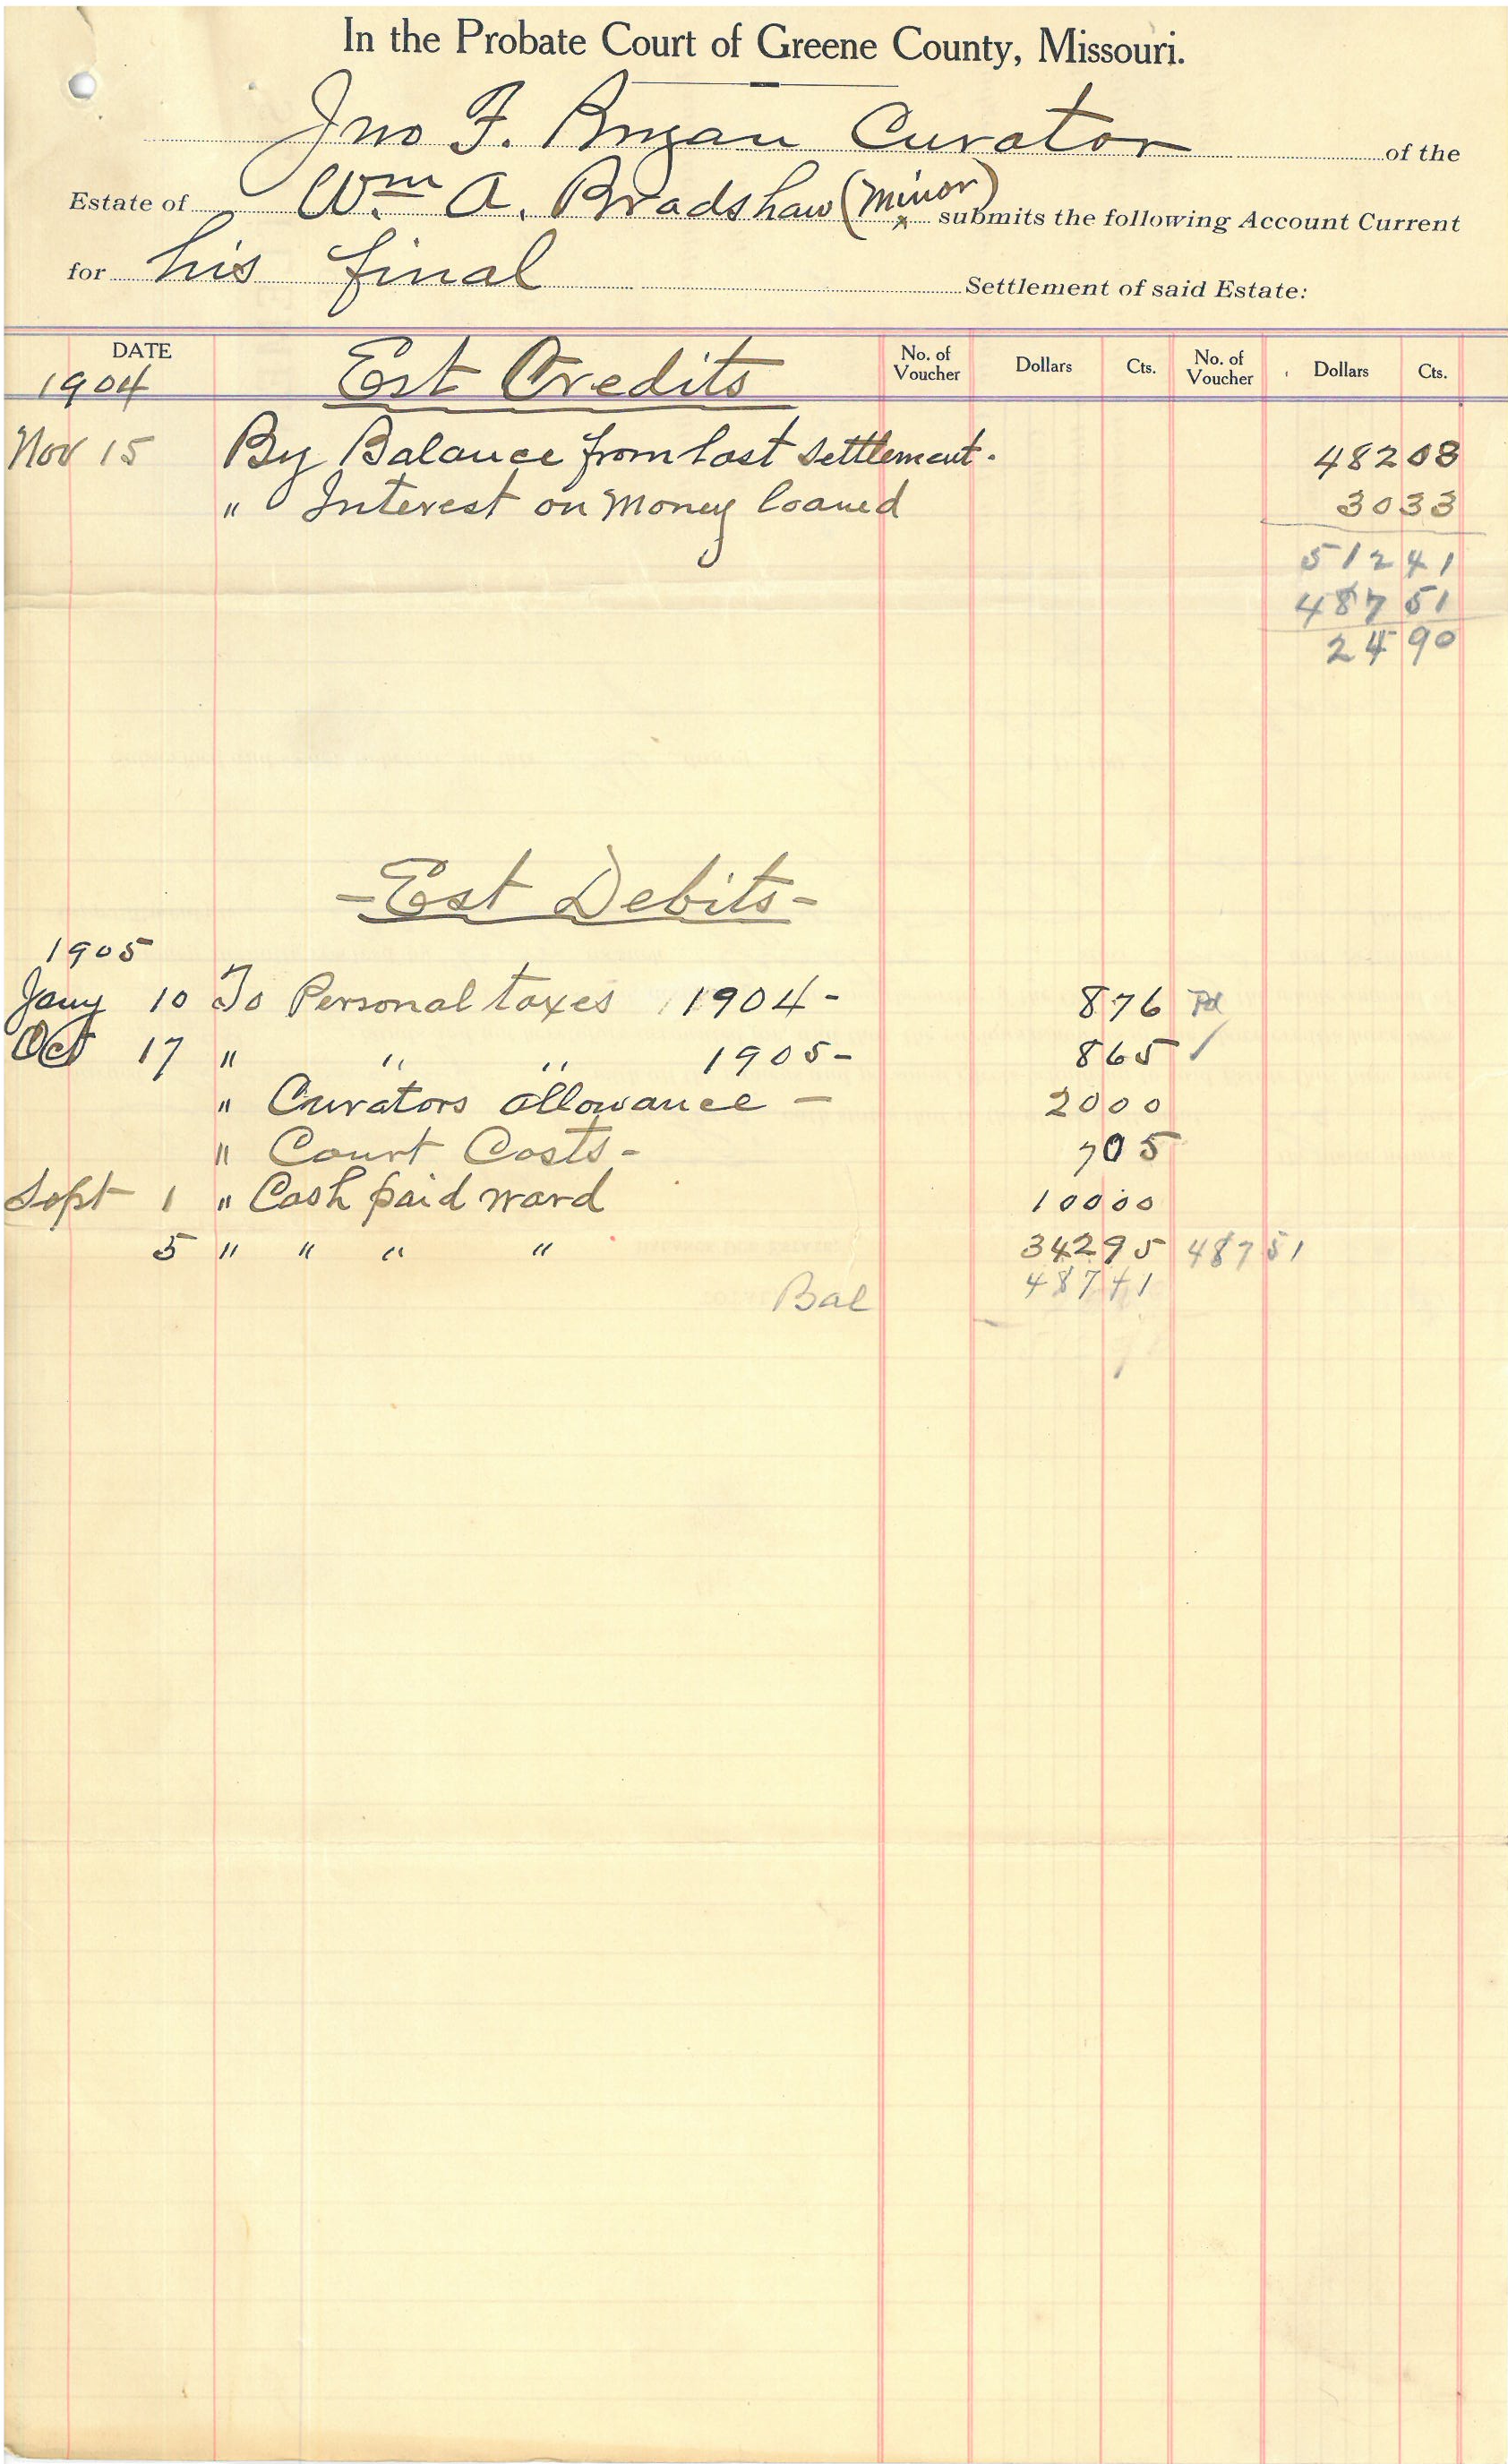 In the Probate Court of Greene County, Missouri.
Jno F. Bryan Curator of the
Estate of Wm. A. Bradshaw (Minor) submits the following Account Current
for his final Settlement of said Estate:
DATE No. of Voucher Dollars Cts. No. of Voucher Dollars Cts.
1904 Est Credits
Nov 15 By Balance from last settlement. 482 08
" Interest on Money loaned 30 33
512 41
487 51
24 90
- Est Debits -
1905
Jany 10 To Personal taxes 1904 - 8 76 Pd
Oct 17 " " " 1905 - 8 65 ✓
" Curators allowance - 20 00
" Court Costs - 7 05
Sept 1 " Cash paid ward 100 00
5 " " " " 342 95 487 51
Bal 487 41